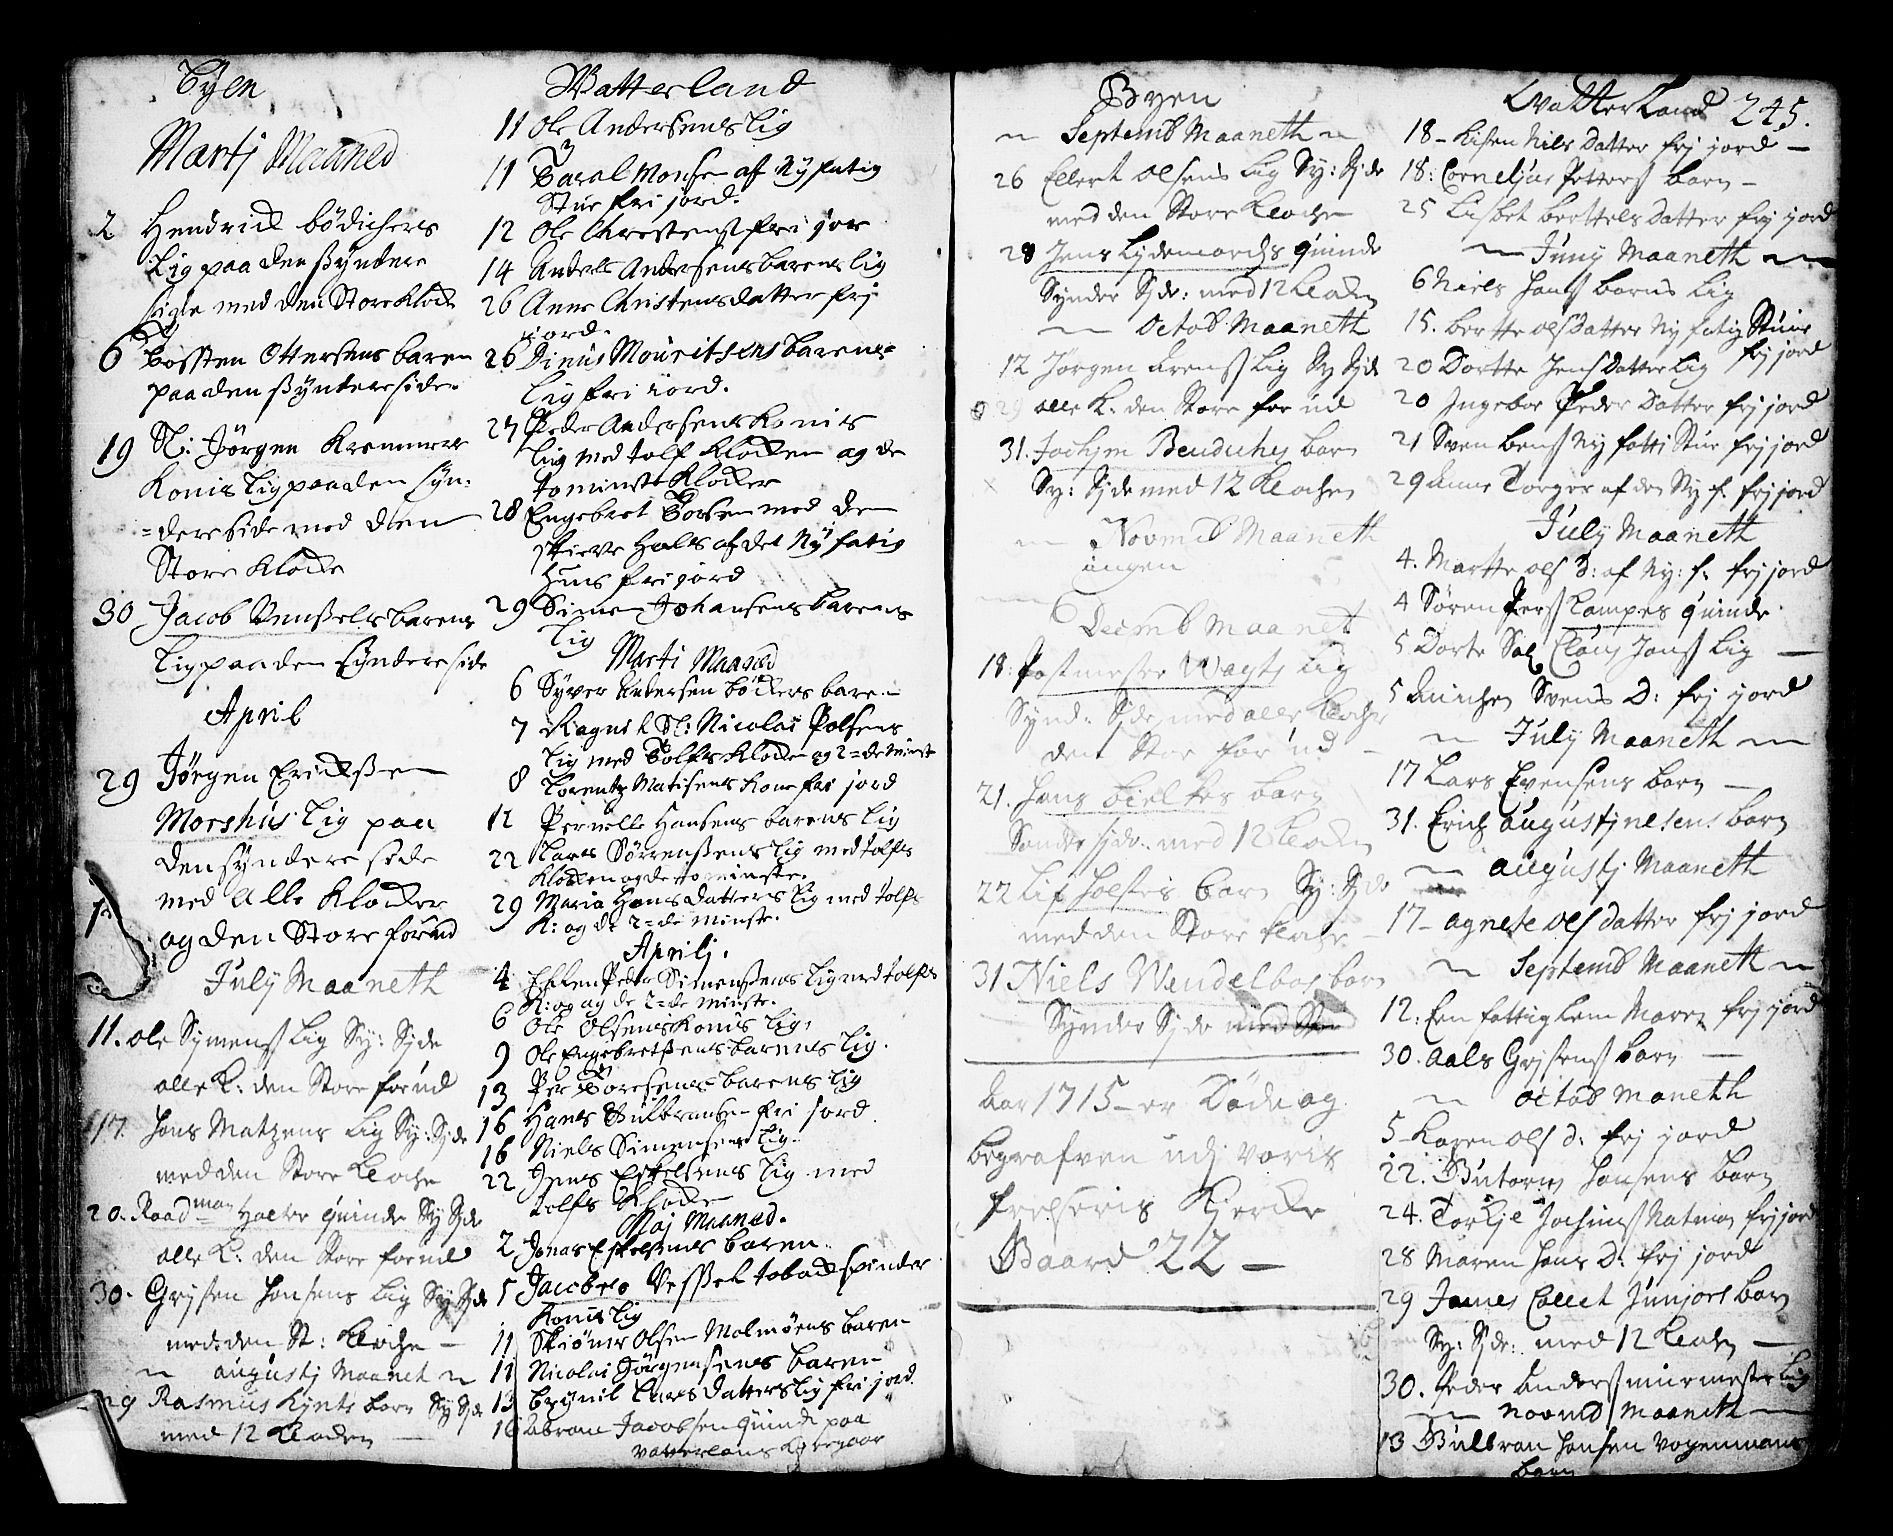 Byen
Martj Maaned
2 Hendrick bødichers
Lig paa den Syndere
side med den Store Klocke
6 Tossten Ottersens baren
paa den Syndere side.
19 Sl: Jørgen Kremmers
Konis Lig paa den Syn=
=dere side med den
Store Klocke
30 Jacob Venssels barens
Lig paa den Syndere side
April
29 Jørgen Erickssen
Morshus Lig paa
den Syndere side
med Alle Klocker
og den Store for ud
July Maaneth
11. ole Symens Lig Sy: Sjde
alle K: den Store for ud
17. Hans Matzens Lig Sy: Sjde
med den Store Kloche
20. Raadman Halter quinde Sy Sjde
alle K: den Store for ud
30. Grysen Hansens Lig Sy Sjde
med den St: Kloche
augustj Maanet
29 Rasmus Kynts barn Sy Sjde
med 12 Klocken
Watterland
11 Ole Andersens Lig
11 Taral Monsen af Ny fatig
Stue fri jord.
12 Ole Chrestens fri jor
14 Anders Andersens barens lig
26 Anne Christensdatter frj
jord.
26 Dinus Mouritsens barens=
Lig fri iord.
27 Peder Andersens Konis
Lig med tolf Klocken og de
to minste Klocker
28 Engebret Torsen med den
skieve Hals af det Ny fatig
Huus fri jord
29 Simen Johansens barens
Lig
Marti Maaned
6 Syver Andersen bødkers baren
7 Ragnil Sl: Nicolai Polsens
Lig med Tolfs Klocken og 2=de minste
8 Lorentz Matisens Kone fri jord
12 Pernelle Hansens barens lig
22 Lars Sørrenssens lig med tolfs
Klocken og de to minste.
29 Maria Hans datters Lig med tolfs
K: og de 2=de minste.
Aprilj.
4 Efter Peder Simenssens Lig med tolfs
K: og de 2=de minste.
6 Ole Olsens Konis Lig,
9 Ole Engebretssens barens Lig.
13 Per Toresens barens Lig
16 Hans Gulbransen fri jord
16 Niels Simensens Lig.
22 Jens Eskelsens Lig med
tolfs Klocke
Maj Maaned.
2 Jonas Eskelsens baren
5 Jacob Vessel tobackspinder
Konis Lig
11 Skiøner Olsen Malmøens baren
11 Nicolai Jørgensens baren
13 brynil Lars datters Lig fri jord.
16 Abram Jacobsen quinde paa
Vatterlans Kirregaar
Byen
Septemb Maaneth
26 Ellert olsens Lig Sy: Sjde
med den Store Klocke
28 Jens Lydemarchs quinde
Synder Sjde: med 12 Klocken
Octob Maaneth
12 Jørgen Lrens Lig Sy Sjde
alle K: den Store for ud
31. Jochjm Beuduchs barn
Sy: Sjde med 12 Klochen
Novmb Maaneth
ingen
Decmb Maanet
18. Postmester Wagts Lig
Synd: Sjde, med alle Klocher
den Stor for ud
21. Hans bieltes barn
Sønder sjde. med 12 Klocken
22 Lif Holsteis barn Sy: Sjde
med den Store klocke
31 Niels Wendelbos barn
Synder Sjde
Aar 1715 er Døde og
begrafven udj voris
frelseris Kjercke
Gaard 22
Watterland 245.
18 Lisen Nils Datter frj jord
18: Corneljus Petters barn
25 Lisbet berttels datter frj jord
Juny Maaneth
6 Niels Hans barns Lig
15. bertte olsdatter Ny fatig Stuie
frj jord
20 Dortte Jens Datter Lig
20 Ingebor Peder Datter frj jord
21 Sven bens Ny fatti Stue frj jord
29 Anne Torger af den Ny f. frj jord
July Maaneth
4. Martte ols D: af Ny: f. frj jord
4 Søren Pers Kampes quinde
5 Dorte Sal Claus Jans Lig
5 Anichen Svens D: frj jord
July Maaneth
17 Lars Evensens barn
31. Erich augustjnesens barn
augustj Maaneth
17 agnete ols datter frj jord
Septemb Maaneth
12. Een fattig lem Maren frj jord
30. aals Grysens barn
octob Moneth
5 Karen ols d: frj jord
22. Butorm Hansens barn
24. Torkje Jochims Natman frj jord
28 Maren Hans D: frj jord
29 James Collet Junjors barn
Sy: Sjde: med 12 Klochen
30. Peder Anders muirmester Lig
Novmb Maaneth
13 Gulbran Hansen vognmans
barn